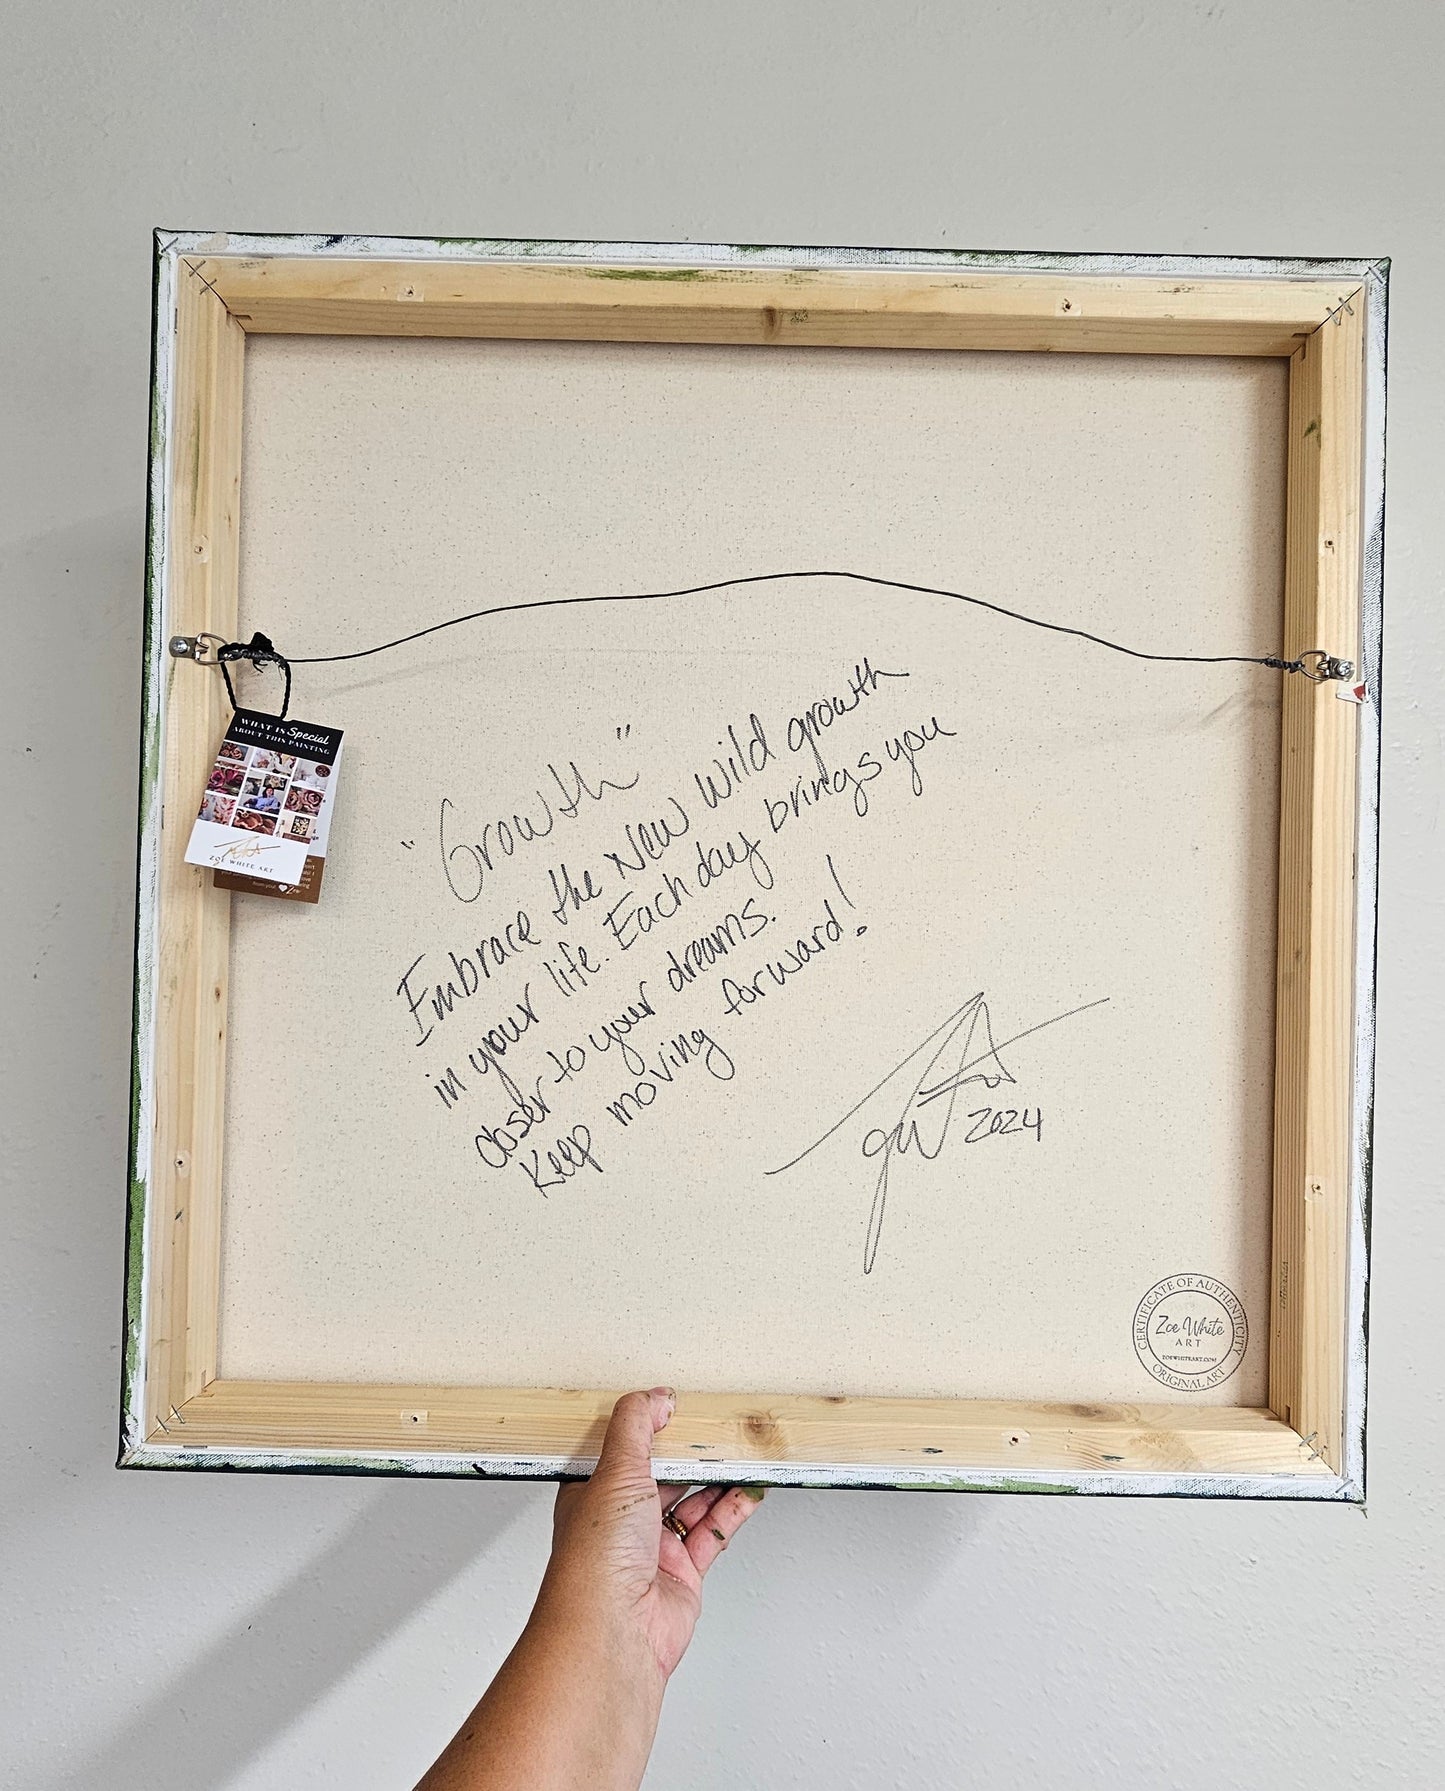 WHAT IS Special
ABOUT THIS PAINTING
ZOE WHITE ART
from you!
"Growth"
Embrace the New wild growth
in your life. Each day brings you
closer to your dreams.
Keep moving forward!
2024
CERTIFICATE OF AUTHENTICITY
Zoe White
ART
ZOEWHITEART.COM
ORIGINAL ART